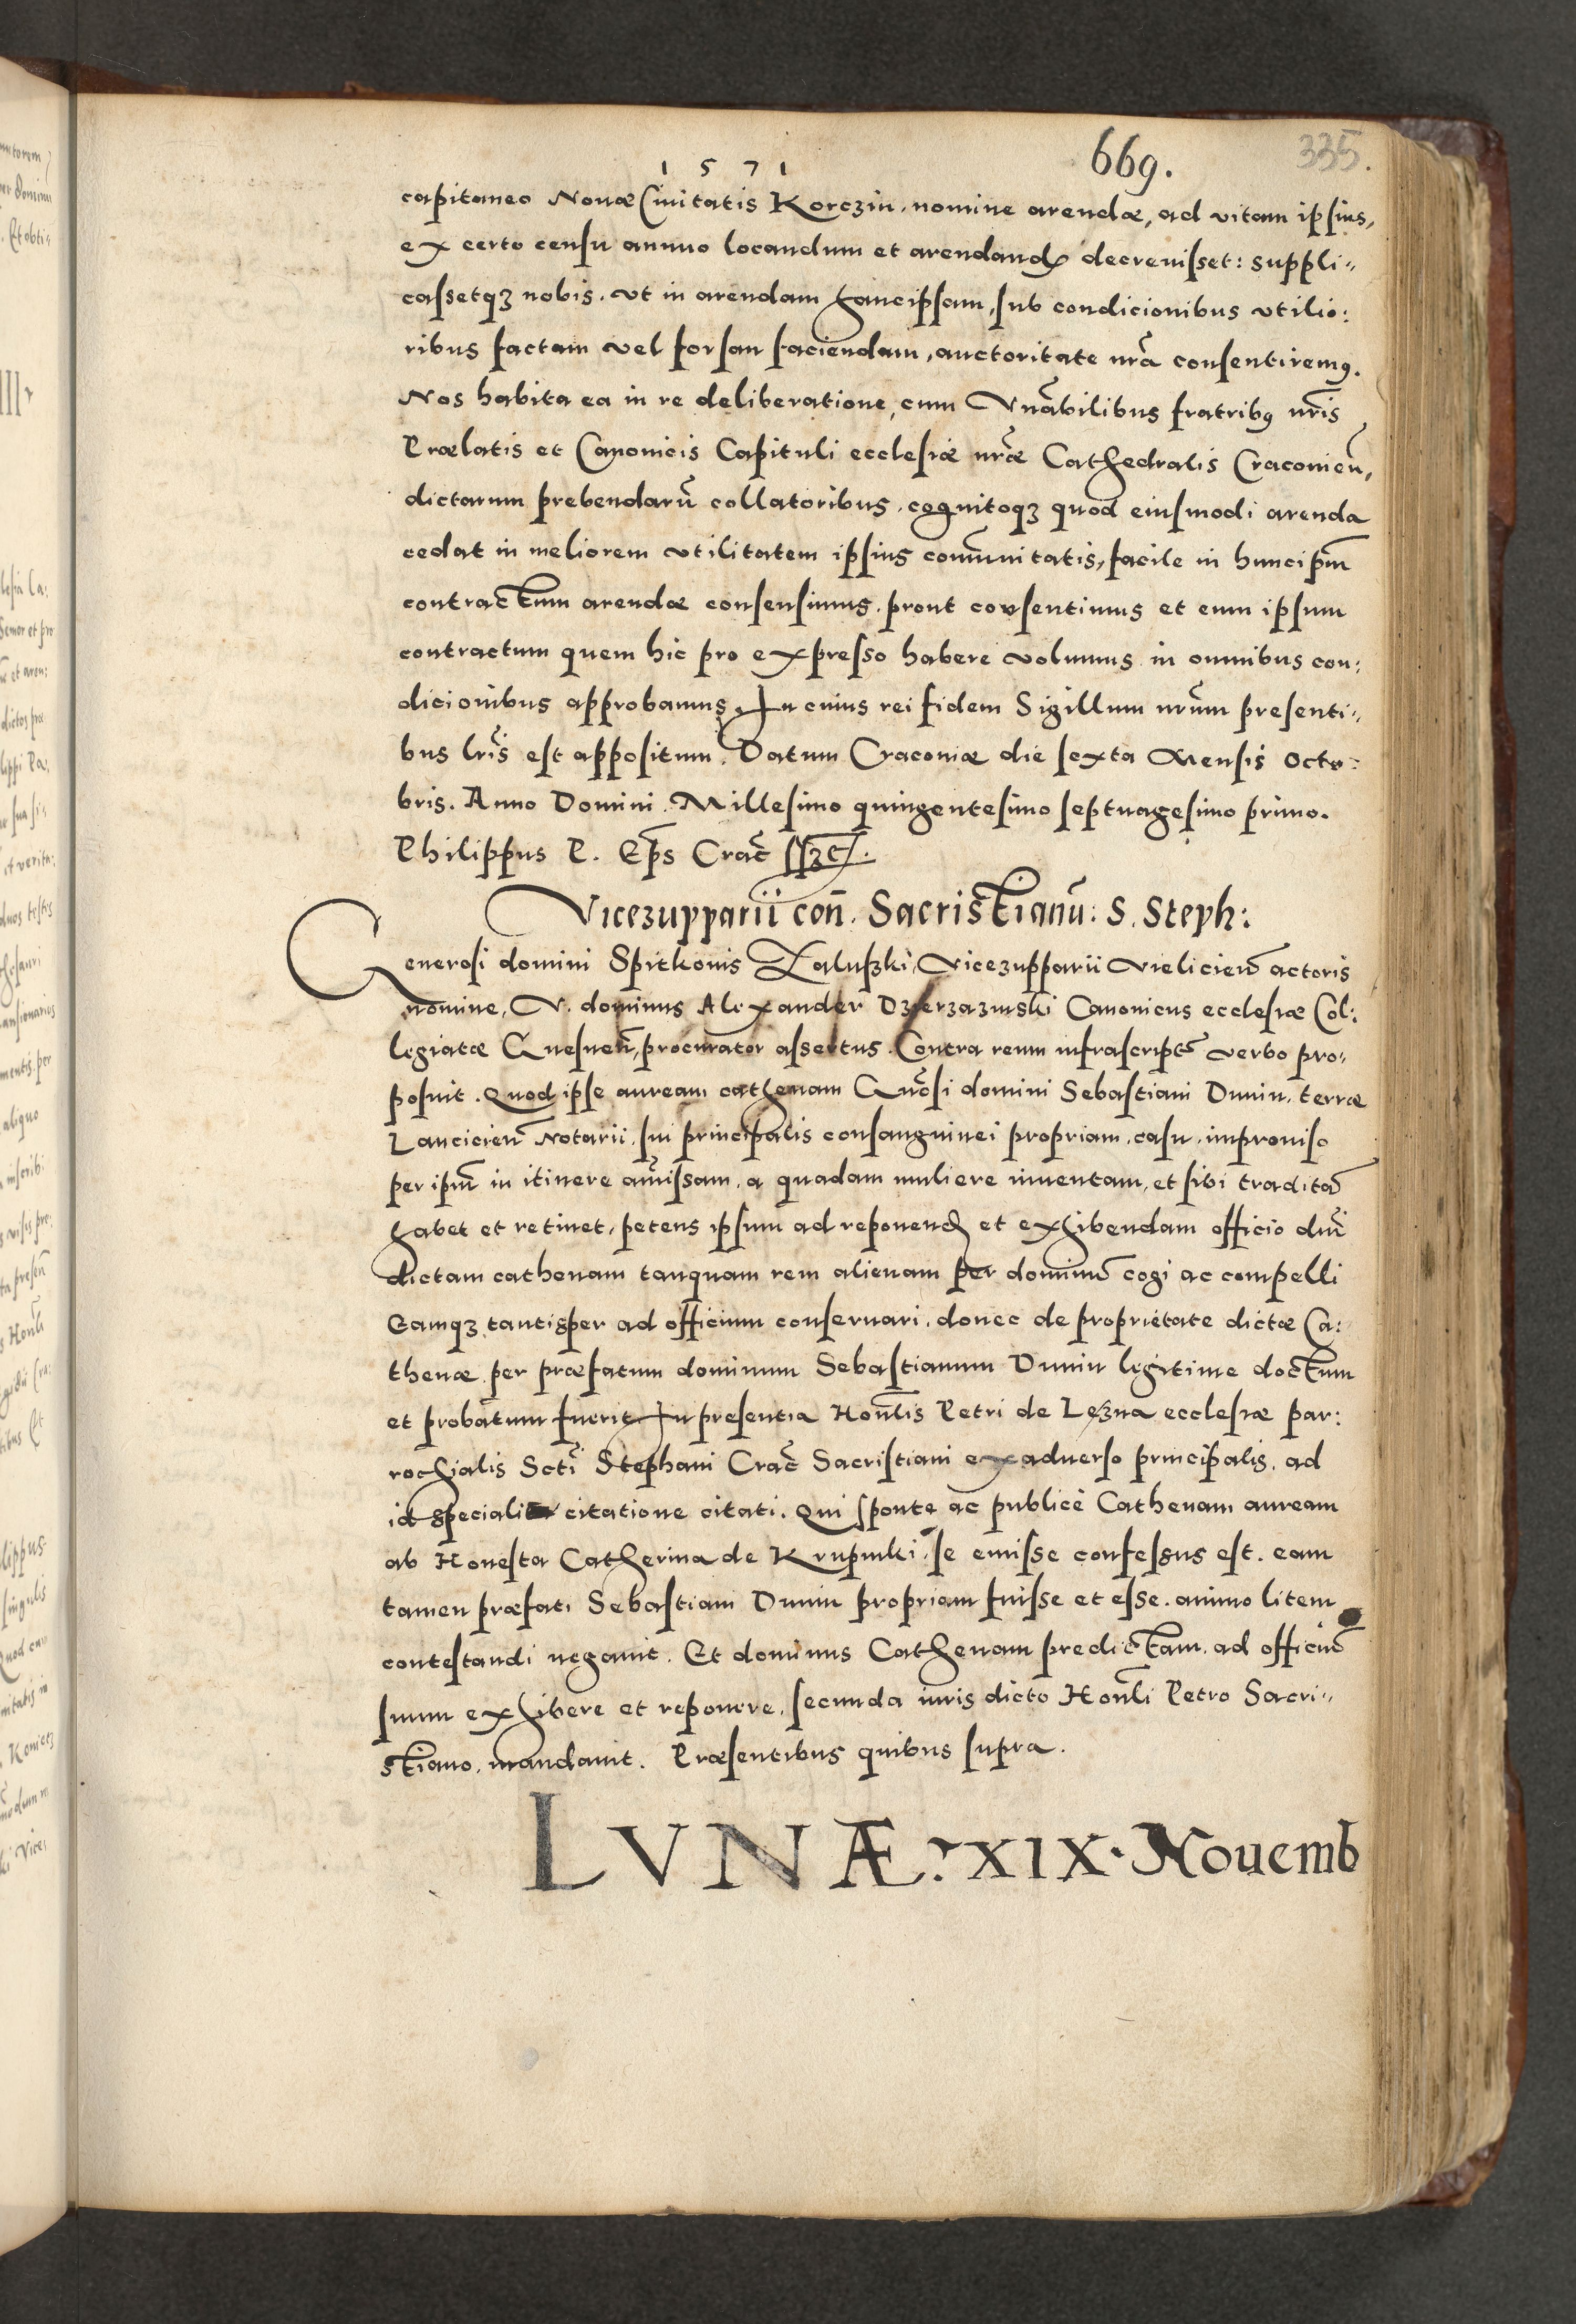 1571
669.
335.
capitaneo Nouæ Ciuitatis Korczin, nomine arendæ, ad vitam ipsius,
ex certo censu annuo locandum et arendand decreuisset: suppli-
cassetqꝫ nobis. vt in arendam hancipsam, sub condicionibus vtilio:
ribus factam vel forsan faciendam, auctoritate nr̃a consentiremꝰ.
Nos habita ea in re deliberatione, cum Vnãbilibus fratribꝰ nr̃is
Prælatis et Canonicis Capituli ecclesiæ nr̃æ Cathedralis Craconień,
dictarum prebendarũ collatoribus, cognitoqꝫ quod eiusmodi arenda
cedat in meliorem vtilitatem ipsius com̃unitatis, facile in huncip̃m
contractum arendæ consensimus. prout consentimus et eum ipsum
contractum quem hic pro expresso habere volumus in omnibus con:
dicionibus approbamus. In cuius rei fidem Sigillum nr̃um presenti-
bus lr̃is est appositum. Datum Cracouiæ die sexta Mensis Octo:
bris. Anno Domini Millesimo quingentesimo septuagesimo primo.
Philippus P. Ep̃s Crac̃ sszt.
Vicezupparii coñ. Sacristianũ: S. Steph:
Generosi domini Spitkonis Zaluszki, Vicezupparii Vielicień actoris
nomine, V. dominus Alexander Dzierzazinski Canonicus ecclesiæ Col:
legiatæ Gnesneñ, procurator assertus. Contra reum infrascript̃ verbo pro-
posuit. Quod ipse auream cathenam Gnõsi domini Sebastiani Dunin, terræ
Lancicieñ Notarii, sui principalis consanguinei propriam, casu improuiso
per ip̃m in itinere amissam, a quadam muliere inuentam, et sibi traditã
habet et retinet, petens ipsum ad reponend et exhibendam officio dñi
dictam cathenam tanquam rem alienam per dominũ cogi ac compelli
Eamqꝫ tantisper ad officium conseruari, donec de proprietate dictæ Ca:
thenæ per præfatum dominum Sebastianum Dunin legitime doctum
et probatum fuerit. In presentia Hon̄lis Petri de Lezna ecclesiæ par:
rochialis Scti Stephani Crac̃ Sacristiani ex aduerso principalis, ad
id speciali citatione citati. Qui sponte ac publicè Cathenam auream
ab Honesta Catherina de Krupniki, se emisse confessus est. eam
tamen præfati Sebastiani Dunin propriam fuisse et esse. animo litem
contestandi negauit. Et dominus Cathenam predictam, ad officiũ
suum exhibere et reponere, secunda iuris dicto Hon̄li Petro Sacri-
stiano, mandauit. Præsentibus quibus supra.
LVNÆ. XIX. Nouemb